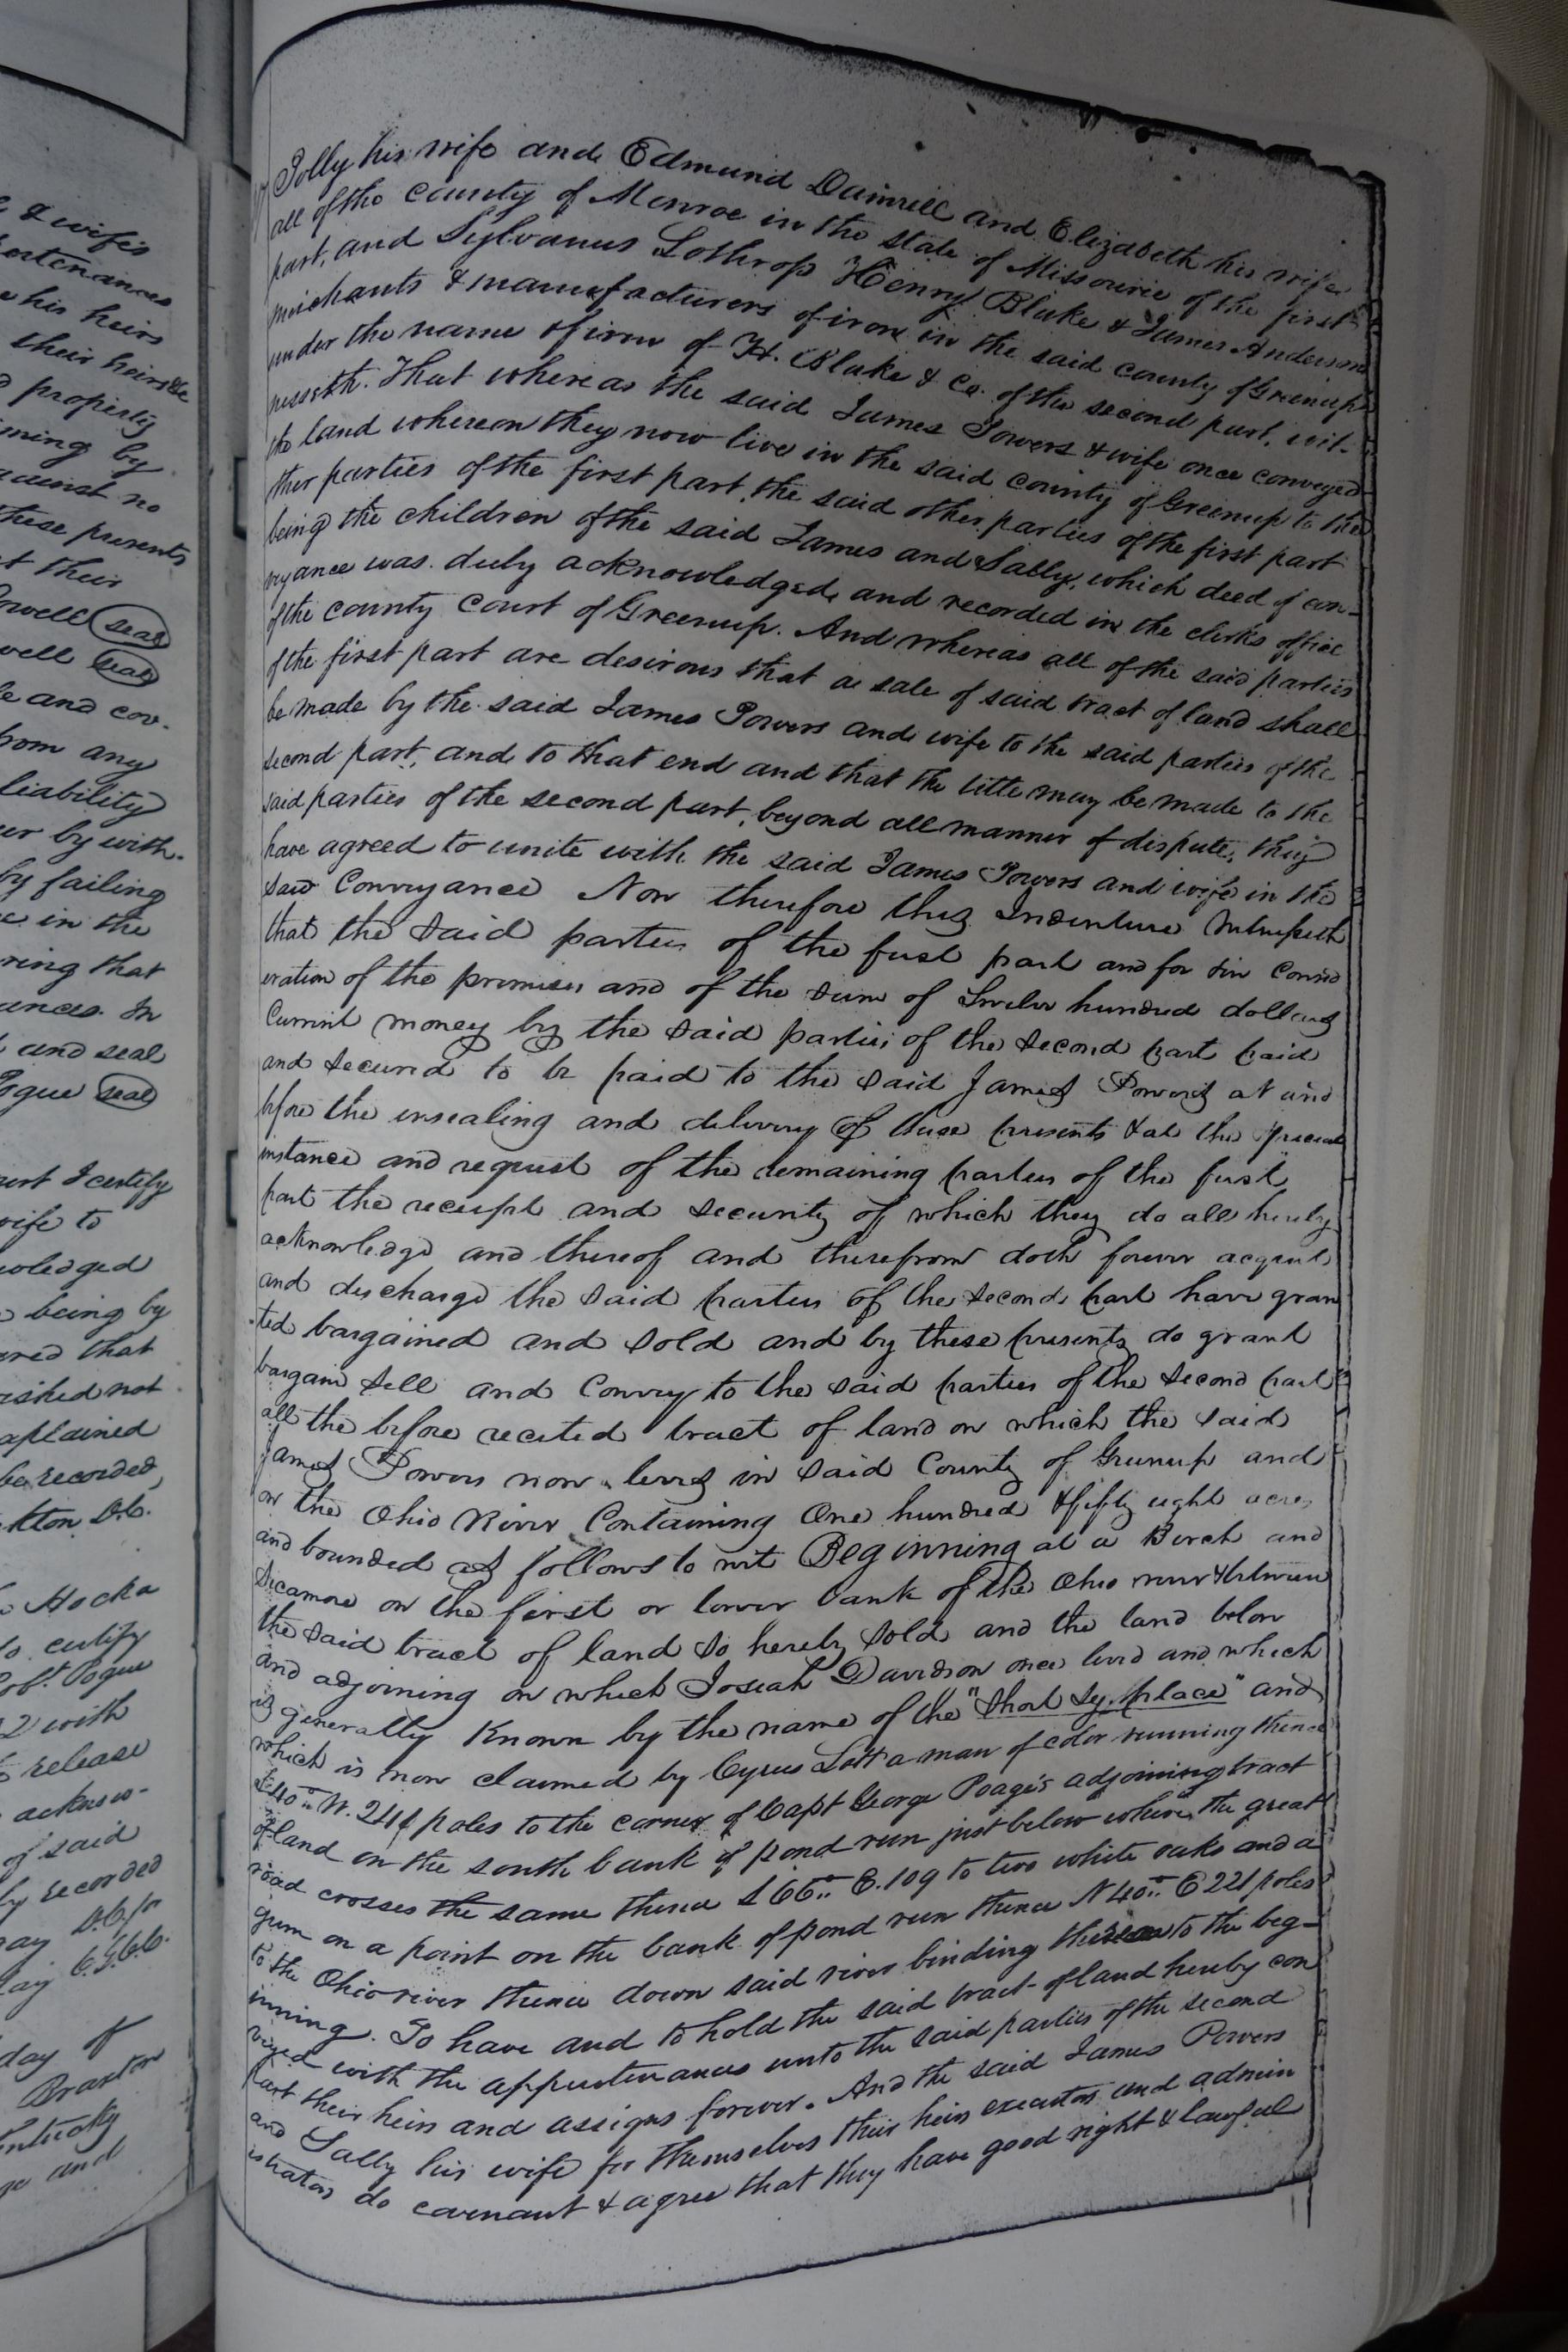 & wife's
his heirs
their heirs &c
property
by
against no
these presents
their
Powell seal
seal
and cov-
from any
liability
by with-
by failing
in the
ring that
In
and seal
Pogue seal
I certify
wife to
being by
that
not
be recorded
Hocka
certify
Pogue
with
release
acknow-
of said
recorded
day of
and
Polly his wife and Edmund Damrell and Elizabeth his wife
all of the county of Monroe in the state of Missourie of the first
part, and Sylvanus Lothrop Henry Blake & James Anderson
merchants & manufacturers of iron in the said county of Greenup
under the name & firm of H. Blake & Co. of the second part, wit-
nesseth. That whereas the said James Powers & wife once conveyed
the land whereon they now live in the said county of Greenup to the
other parties of the first part, the said other parties of the first part
being the children of the said James and Sally, which deed of con-
veyance was duly acknowledged and recorded in the clerks office
of the county court of Greenup. And whereas all of the said parties
of the first part are desirous that a sale of said tract of land shall
be made by the said James Powers and wife to the said parties of the
second part, and to that end and that the title may be made to the
said parties of the second part, beyond all manner of dispute, they
have agreed to unite with the said James Powers and wife in the
said Conveyance Now therefore this Indenture Witnesseth
that the said parties of the first part and for in Consid
eration of the premises and of the sum of Twelve hundred dollars
Current money by the said parties of the Second part paid
and Secured to be paid to the said James Powers at and
before the ensealing and delivery of these presents & at the special
instance and request of the remaining parties of the first
part the receipt and Security of which they do all hereby
acknowledge and thereof and therefrom doth forever acquit
and discharge the said parties of the Second part have gran
ted bargained and sold and by these presents do grant
bargain Sell and Convey to the said parties of the Second part
all the before recited tract of land on which the said
James Powers now lives in said County of Greenup and
on the Ohio River Containing One hundred & fifty eight acres
and bounded as follows to wit Beginning at a Birch and
Sicamore on the first or lower bank of the Ohio river & between
the said tract of land so hereby sold and the land below
and adjoining on which Josiah Davidson once lived and which
is generally Known by the name of the "Short place" and
which is now claimed by Cyrus Lott a man of color running thence
S 40° W. 244 poles to the corner of Capt George Poage's adjoining tract
of land on the south bank of pond run just below where the great
road crosses the same thence S 66° E. 109 to two white oaks and a
gum on a point on the bank of pond run thence N 40° E 221 poles
to the Ohio river thence down said river binding thereon to the beg-
inning. To have and to hold the said tract of land hereby con
veyed with the appurtenances unto the said parties of the second
part their heirs and assigns forever. And the said James Powers
and Sally his wife for themselves their heirs executors and admin
istrators do covenant & agree that they have good right & lawful